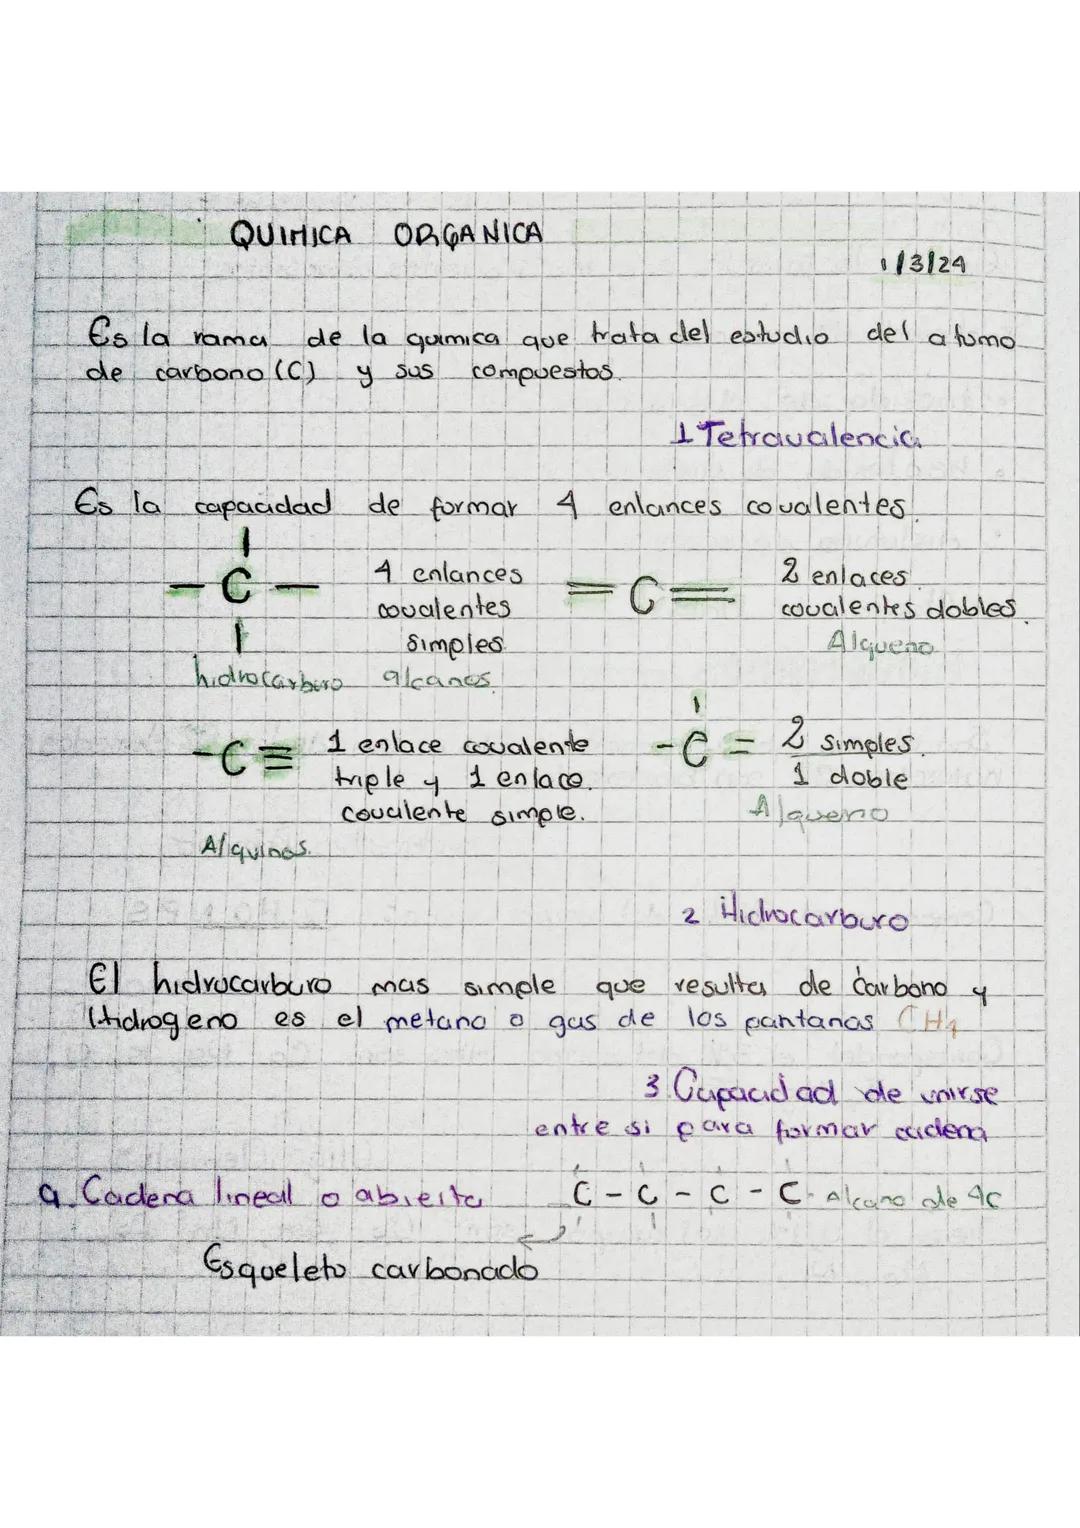 QUIMICA ORGANICA
1/3/24
Es la rama de la quimica que trata del estudio del atomo
de carbono (C) y sus compuestos.
1 Tetravalencia
Es la capacidad de formar 4 enlances covalentes.
- C -
4 enlances
covalentes
simples
hidrocarburo alcanos
= C =
2 enlaces
covalentes dobles.
Alqueno
- C ≡
1 enlace covalente
triple y 1 enlace
covalente simple.
Alquinos.
- C =
2 simples.
1 doble
Alqueno
2 Hidrocarburo
El hidrocarburo mas simple que resulta de Carbono y
Hidrogeno es el metano o gas de los pantanos CH4
3 Capacidad de unirse
entre si para formar cadena
a. Cadena lineal o abierta
C - C - C - C - Alcano de 4C
Esqueleto carbonado